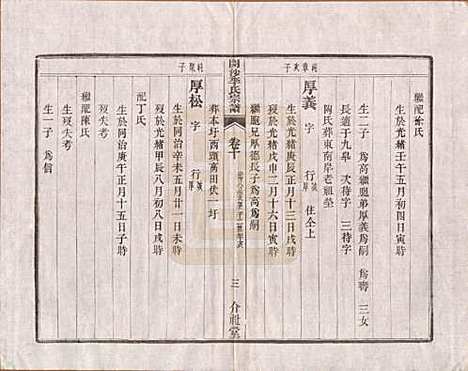 繼配徐氏
生於光緒壬午五月初四日寅時
生二子 爲高繼胞弟厚義爲嗣 爲壽 三女
長適于九皋 次待字 三待字
陶氏葬東南岸老祖塋
純章次子
厚義 字 行 住仝上
生於光緒庚辰正月十三日戌時
歿於光緒戊申二月十六日寅時
繼胞兄厚德長子爲高爲嗣
閔沙季氏宗譜
卷十
三 介祉堂
葬本圩西頭高田伏一圩
純聚子
厚松 字 行
生於同治辛未五月廿一日未時
歿於光緒甲辰八月初八日戌時
配丁氏
生於同治庚午正月十五日子時
歿失考
繼配陳氏
生歿失考
生一子 爲信